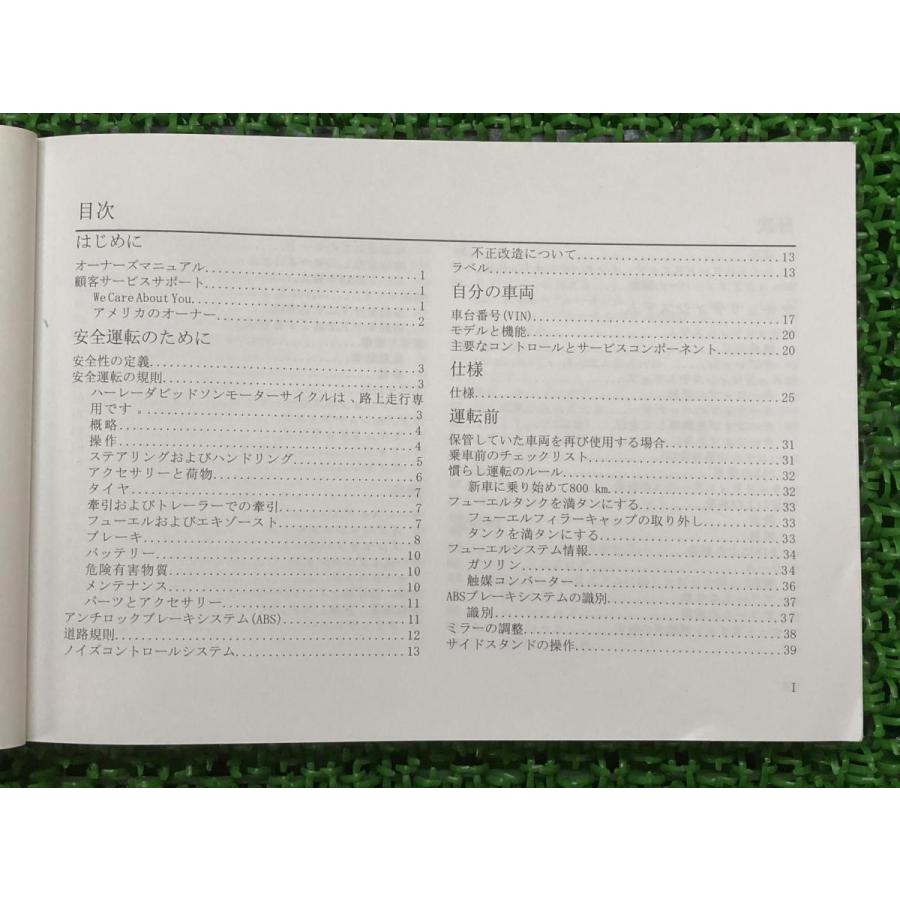 目次
はじめに
オーナーズマニュアル..............................1
顧客サービスサポート..............................1
We Care About You..............................1
アメリカのオーナー..............................2
安全運転のために
安全性の定義..............................3
安全運転の規則..............................3
ハーレーダビッドソンモーターサイクルは、路上走行専
用です。..............................3
概略..............................4
操作..............................4
ステアリングおよびハンドリング..............................5
アクセサリーと荷物..............................6
タイヤ..............................7
牽引およびトレーラーでの牽引..............................7
フューエルおよびエキゾースト..............................7
ブレーキ..............................8
バッテリー..............................10
危険有害物質..............................10
メンテナンス..............................10
パーツとアクセサリー..............................11
アンチロックブレーキシステム(ABS)..............................11
道路規則..............................12
ノイズコントロールシステム..............................13
不正改造について..............................13
ラベル..............................13
自分の車両
車台番号(VIN)..............................17
モデルと機能..............................20
主要なコントロールとサービスコンポーネント..............................20
仕様
仕様..............................25
運転前
保管していた車両を再び使用する場合..............................31
乗車前のチェックリスト..............................31
慣らし運転のルール..............................32
新車に乗り始めて800 km..............................32
フューエルタンクを満タンにする..............................33
フューエルフィラーキャップの取り外し..............................33
タンクを満タンにする..............................33
フューエルシステム情報..............................34
ガソリン..............................34
触媒コンバーター..............................36
ABSブレーキシステムの識別..............................37
識別..............................37
ミラーの調整..............................38
サイドスタンドの操作..............................39
I